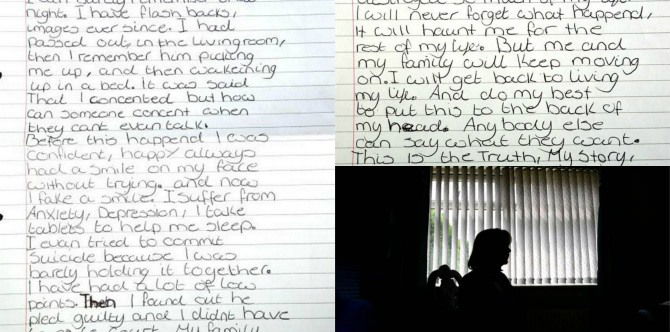 night. I have flash backs,
images ever since. I had
passed out, in the livingroom,
then I remember him picking
me up, and then wakeining
up in a bed. It was said
That I concented but how
can someone concent when
they cant evan talk.
Before this happend I was
confident, happy always
had a smile on my face
without trying. and now
I fake a smile. I suffer from
Anxiety, Depression, I take
tablets to help me sleep.
I evan tried to commit
Suicide because I was
barely holding it together.
I have had a lot of low
points. Then I found out he
pled guilty and I didnt have
I will never forget what happend,
It will haunt me for the
rest of my life. But me and
my family will keep moving
on. I will get back to living
my life. And do my best
to put this to the back of
my head. Any body else
can say what they want.
This is the Truth, My Story,